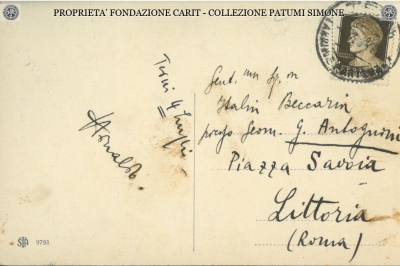 PROPRIETA' FONDAZIONE CARIT - COLLEZIONE PATUMI SIMONE
Terni 4 Luglio
Arnaldo
Gent.ma Sig.na
Italia Beccarin
presso Geom. G. Antognoni
Piazza Savoia
Littoria
(Roma)
STA 9793